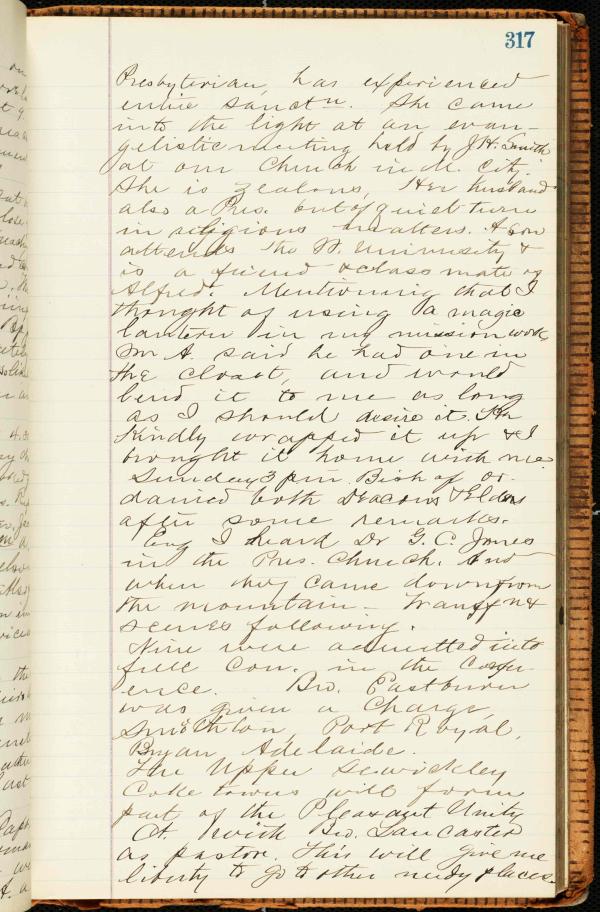 317
Presbyterian, has experienced
entire sanctn. She came
into the light at an evan-
gelistic meeting held by J.H. Smith
at our Church in M. City.
She is zealous, Her husband
also a Pres. but of quiet turn
in religious matters. A son
attends the W. University &
is a friend & classmate of
Alfred. Mentioning that I
thought of using a magic
lantern in my mission work,
Mr A. said he had one in
the closet, and would
lend it to me as long
as I should desire it. He
Kindly wrapped it up & I
brought it home with me.
Sunday 3 pm Bishop or-
dained both Deacons & Elders
after some remarks.
Eng I heard Dr G. C. Jones
in the Pres. Church. And
when they came down from
the mountain. Transfn &
scenes following.
Nine were admitted into
full Con. in the Confer-
ence. Bro. Eastburn
was given a Charge,
Smithton, Port Royal,
Bryan, Adelaide.
The Upper Sewickley
Coke towns will form
part of the Pleasant Unity
Ct. with Bro. Lancaster
as pastor. This will give me
liberty to go to other needy places.